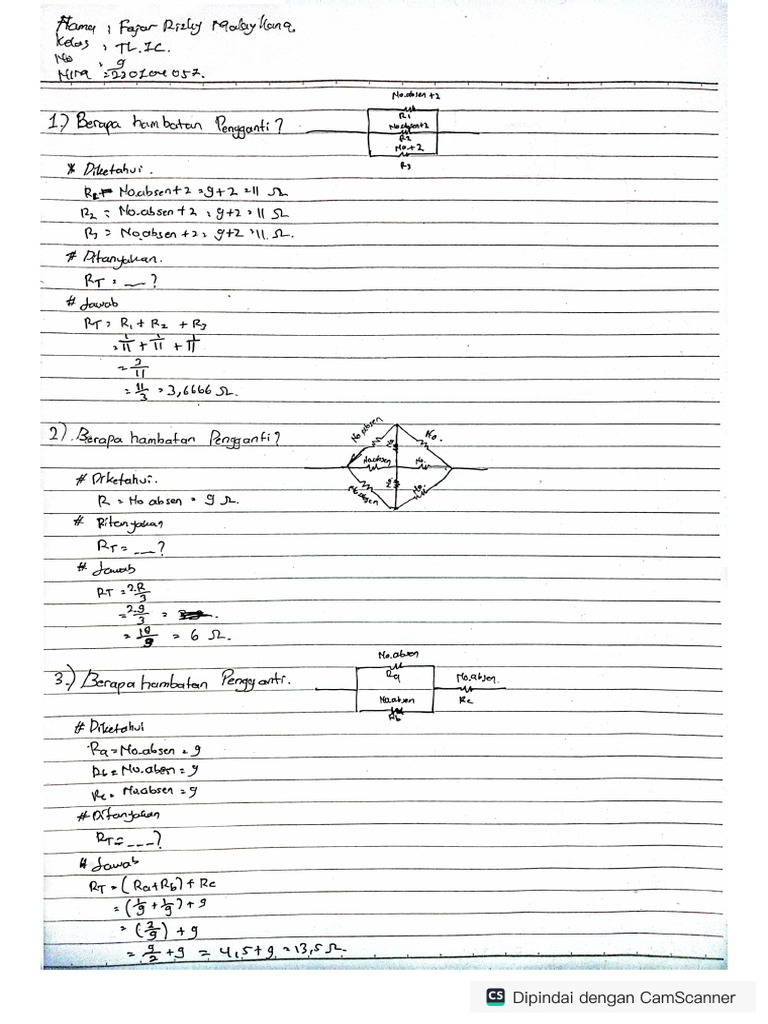 Nama : Fajar Rizky Maulay Kana
Kelas : TL.1C.
No : 9
NIM =
1.) Berapa hambatan Pengganti?
No.absen+2
R1
No.absen+2
R2
No.+2
R3
* Diketahui.
R1 = No.absen+2 = 9+2 = 11 Ω
R2 = No.absen+2 = 9+2 = 11 Ω
R3 = No.absen+2 = 9+2 = 11 Ω.
# Ditanyakan.
RT = __ ?
# Jawab
RT = R1 + R2 + R3
= 1/11 + 1/11 + 1/11
= 3/11
= 11/3 = 3,6666 Ω.
2). Berapa hambatan Pengganti?
No.absen
No.
No.absen
No.
No.absen
No.
# Diketahui.
R = No absen = 9 Ω.
# Ditanyakan
RT = __?
# Jawab
RT = 2.R/3
= 2.9/3 =
= 6 Ω.
3.) Berapa hambatan Pengganti.
No.absen
Ra
No.absen.
No.absen
Rb
Rc
# Diketahui
Ra = No.absen = 9
Rb = No.absen = 9
Rc = No.absen = 9
# Ditanyakan
RT = ___?
# Jawab
RT = (Ra+Rb) + Rc
= (1/9 + 1/9) + 9
= (2/9) + 9
= 9/2 + 9 = 4,5+9 = 13,5 Ω.
CS Dipindai dengan CamScanner